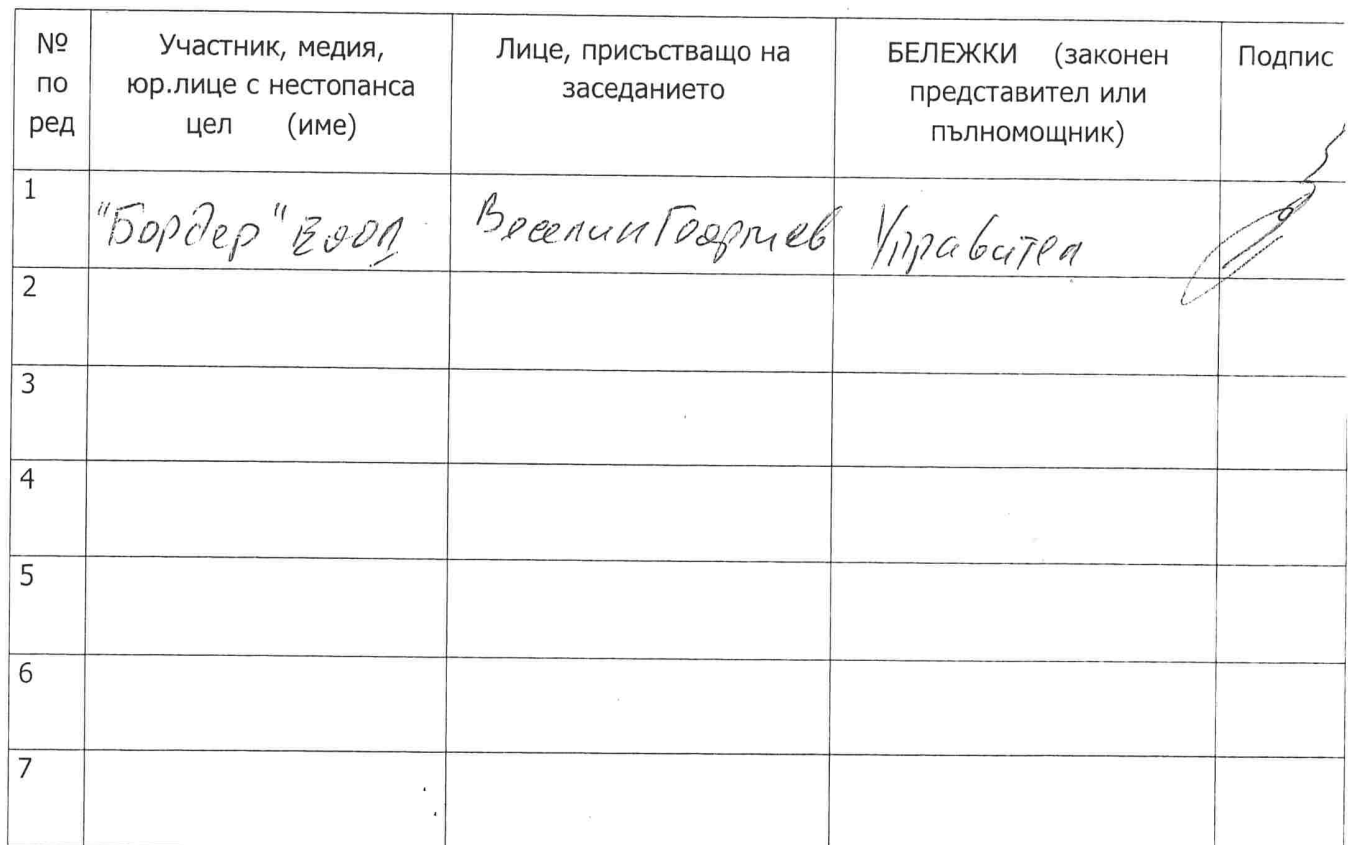 № по ред
Участник, медия,
юр.лице с нестопанса
цел (име)
Лице, присъстващо на
заседанието
БЕЛЕЖКИ (законен
представител или
пълномощник)
Подпис
1
"Бордер" ЕООД
Веселин Георгиев
Управител
2
3
4
5
6
7